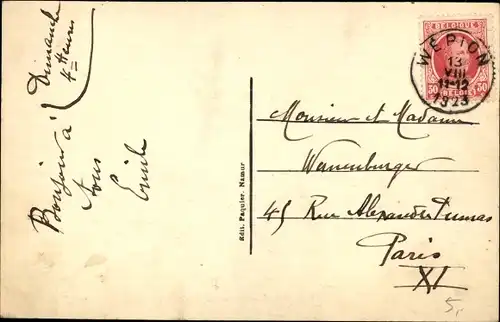 Dimanche
4 Heures
Bonjour à
tous
Emile
Edit. Paquier, Namur
BELGIQUE
30 30
BELGIË
WÉPION
13
VIII
11-12
1923
Monsieur et Madame
Wanenburger
45 Rue Alexandre Dumas
Paris
XI
5,